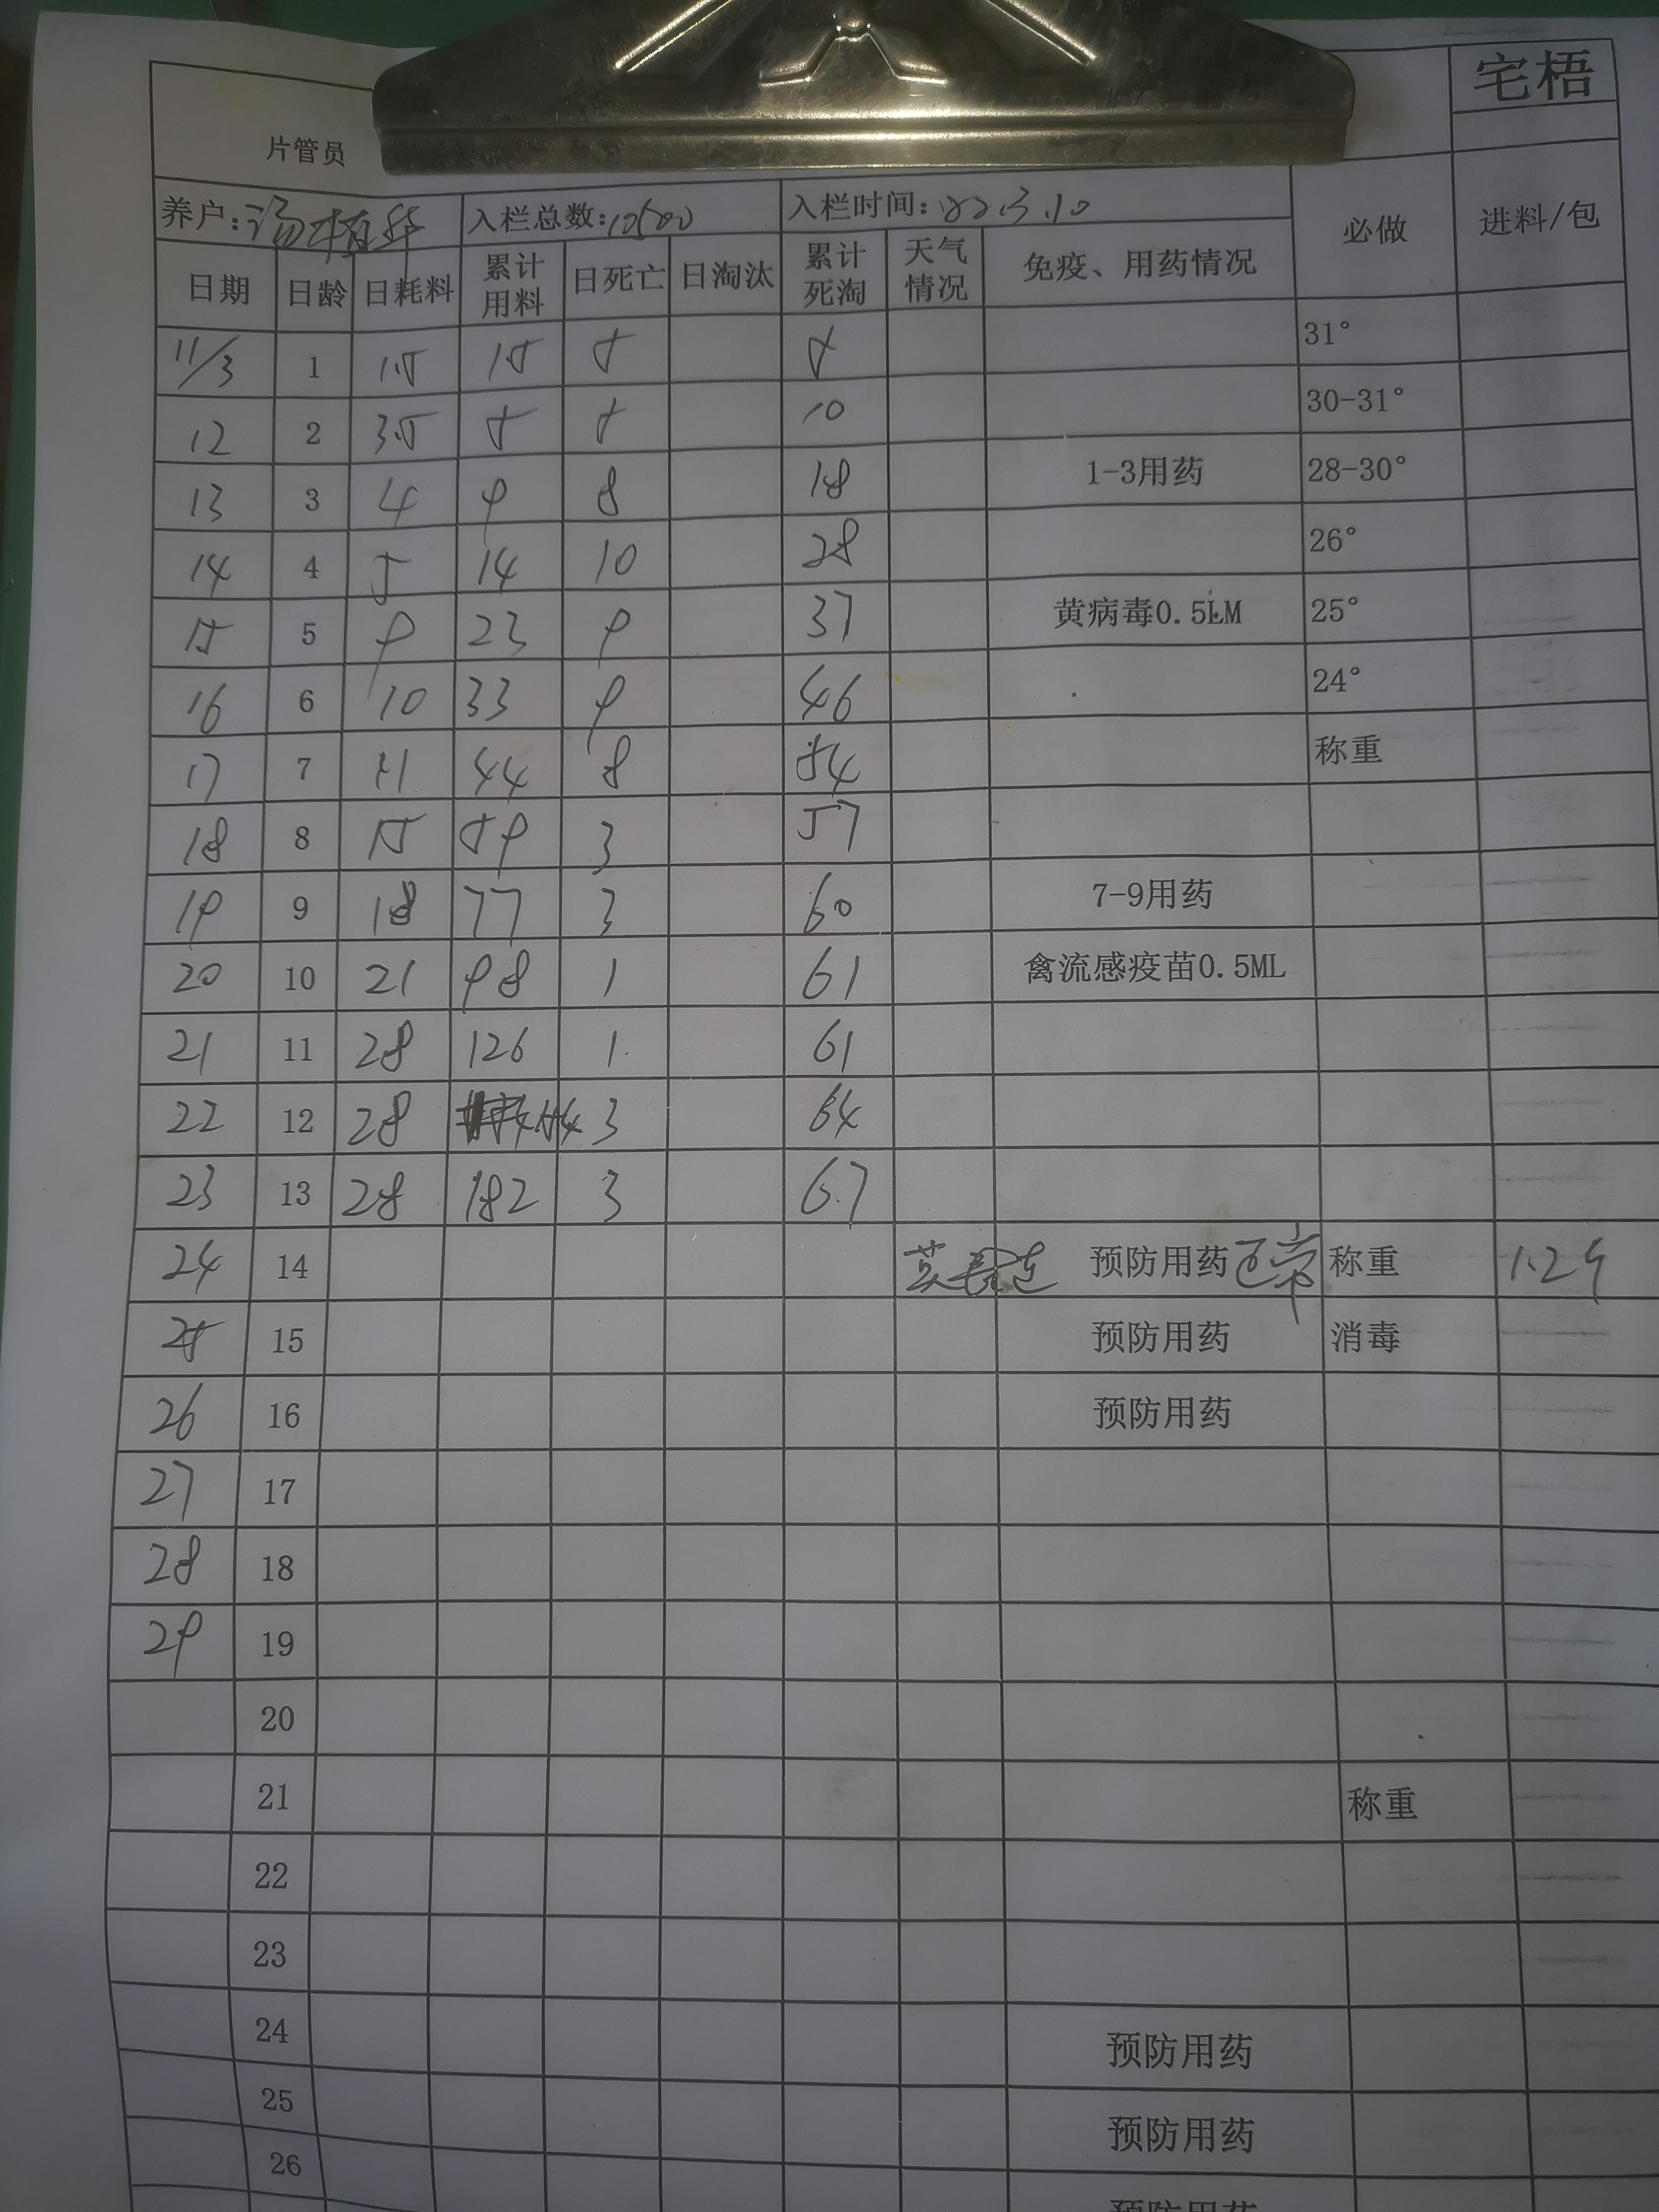 宅梧
片管员
养户:汤植华 入栏总数:10500 入栏时间:22.3.10 必做 进料/包
日期 日龄 日耗料 累计用料 日死亡 日淘汰 累计死淘 天气情况 免疫、用药情况
11/3 1 1.5 1.5 5 5 31°
12 2 3.5 5 5 10 30-31°
13 3 4 9 8 18 1-3用药 28-30°
14 4 5 14 10 28 26°
15 5 9 23 9 37 黄病毒0.5LM 25°
16 6 10 33 9 46 24°
17 7 11 44 8 54 称重
18 8 15 59 3 57
19 9 18 77 3 60 7-9用药
20 10 21 98 1 61 禽流感疫苗0.5ML
21 11 28 126 1 61
22 12 28 154 3 64
23 13 28 182 3 67
24 14 预防用药 称重
25 15 预防用药 消毒
26 16 预防用药
27 17
28 18
29 19
20
21 称重
22
23
24 预防用药
25 预防用药
26 预防用药